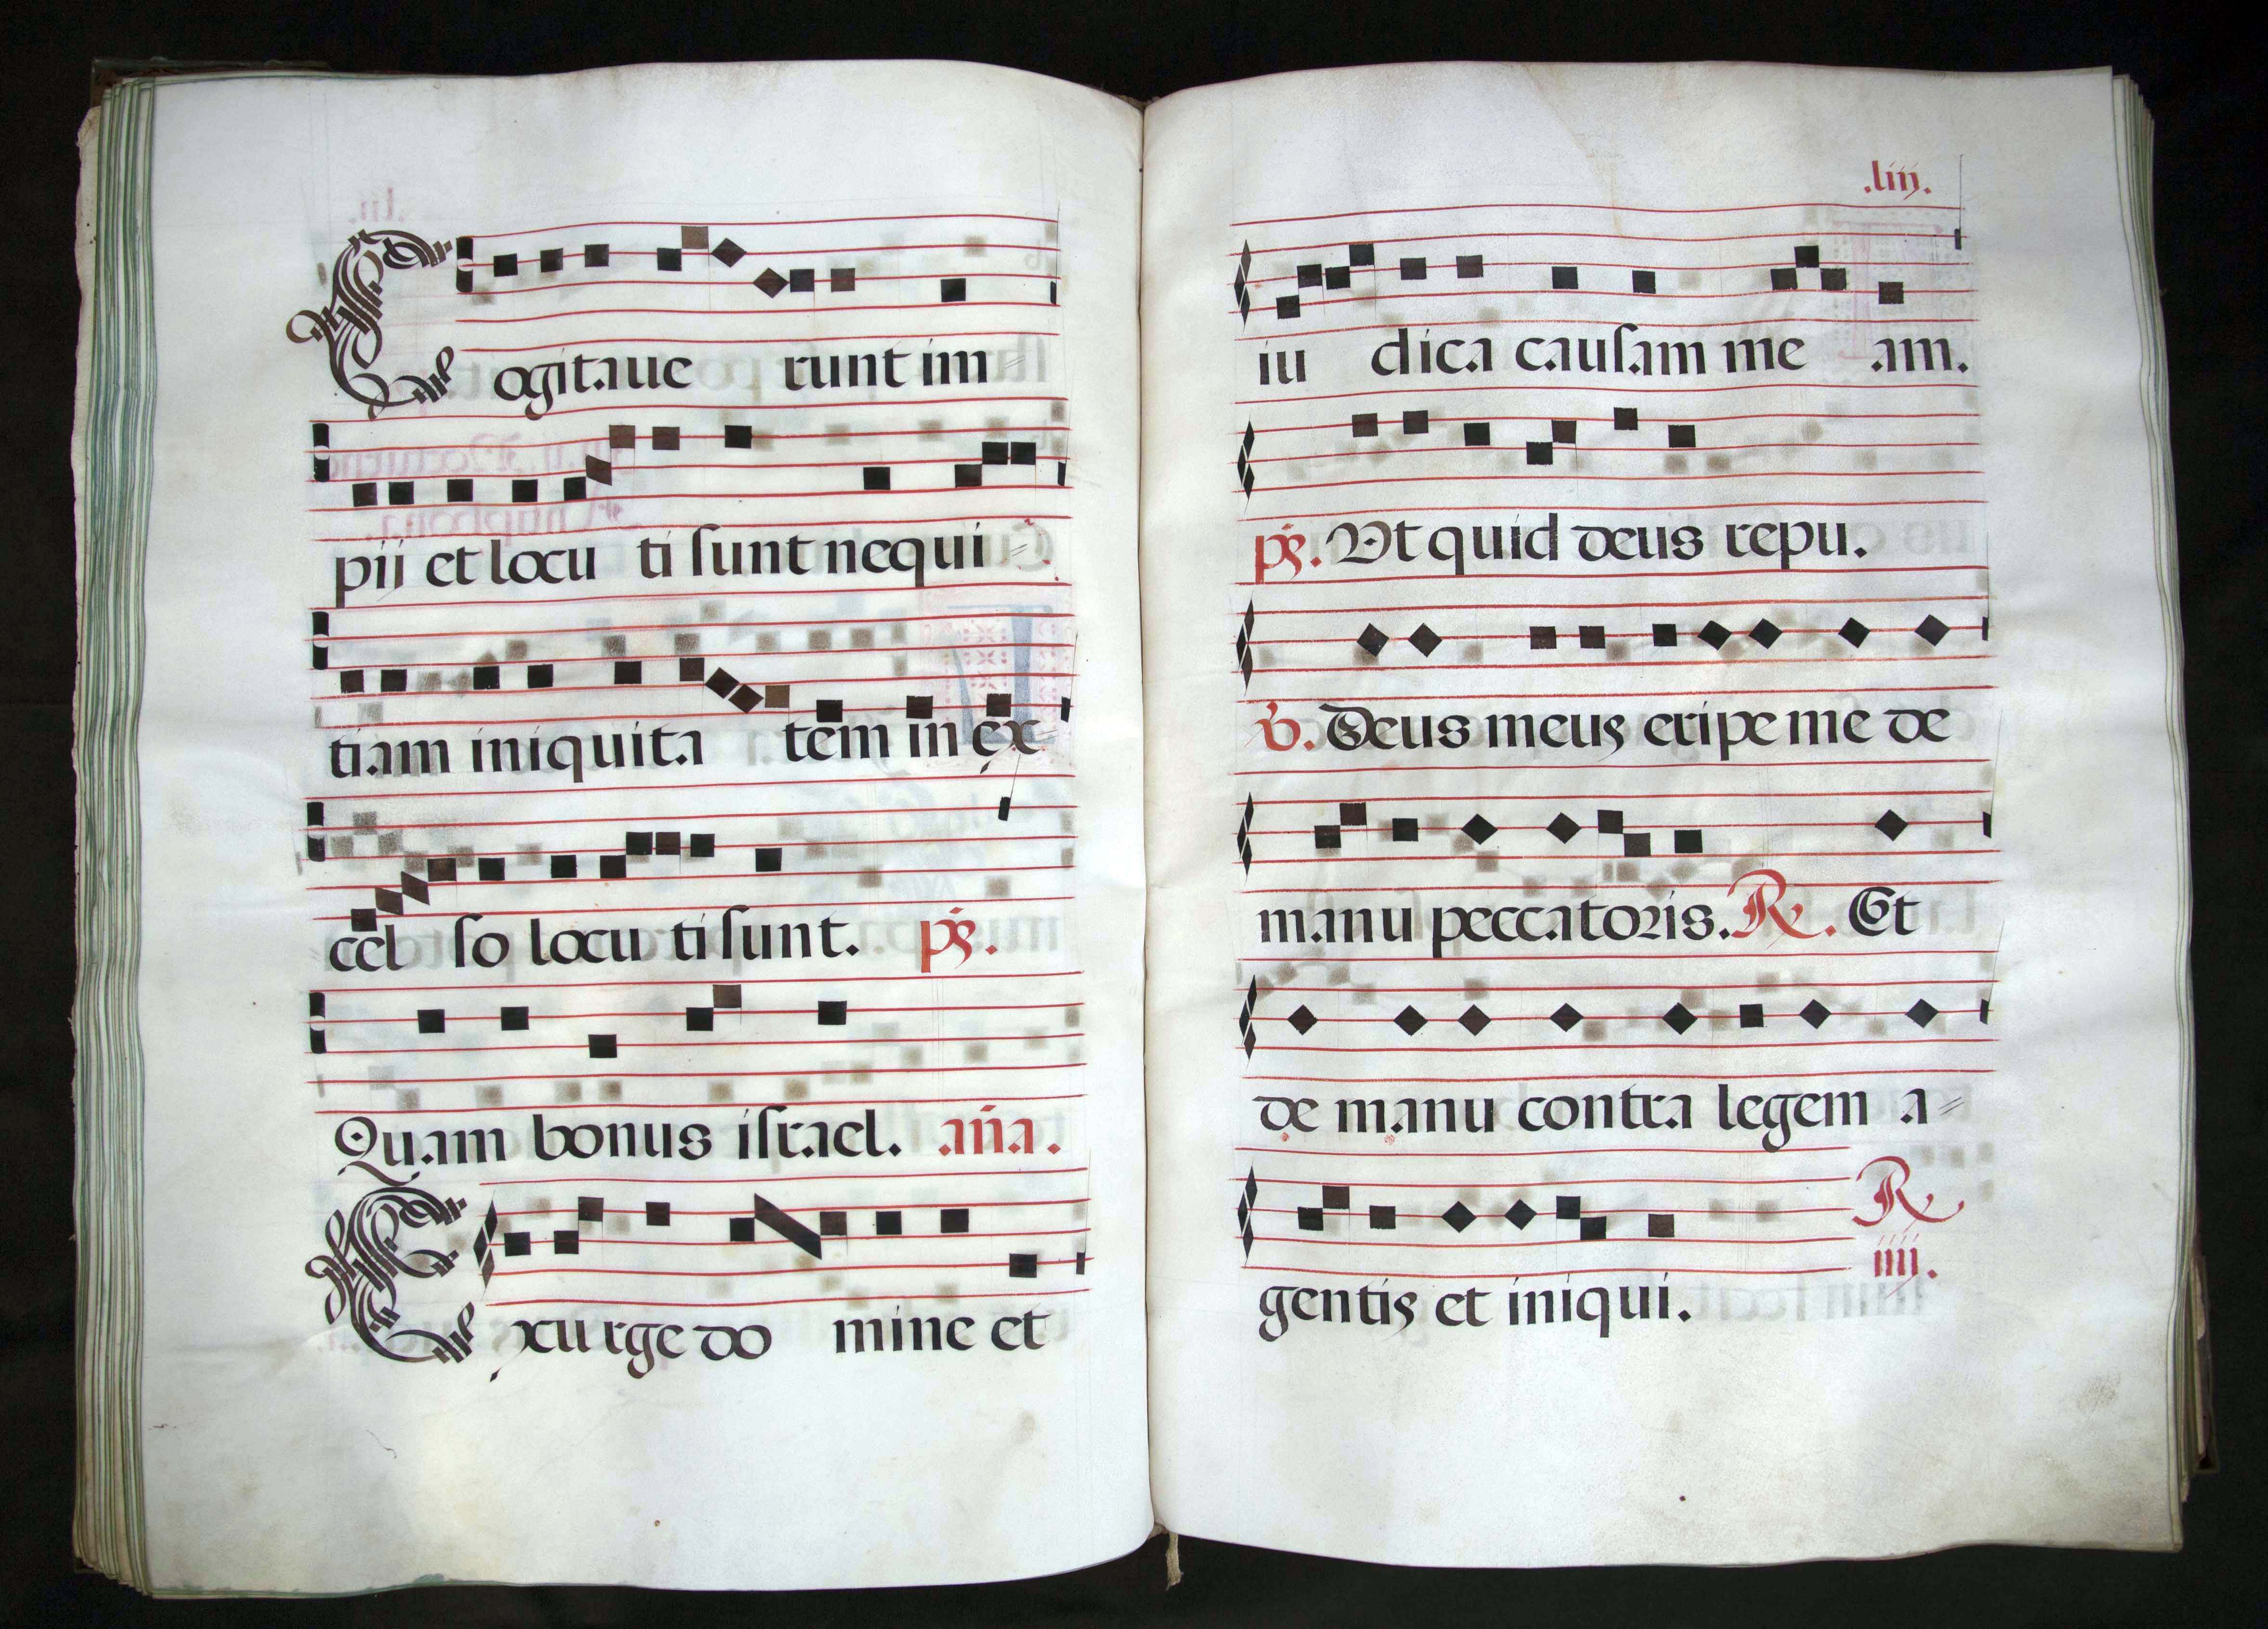 Cogitaue runt im=
pij et locu ti sunt nequi=
tiam iniquita tem in ex=
cel so locu ti sunt. ps.
Quam bonus israel. aña.
Exurge do mine et
.liij.
iu dica causam me am.
ps. Ut quid deus repu.
V. Deus meus eripe me de
manu peccatoris. R. Et
de manu contra legem a=
gentis et iniqui. R
iiij.